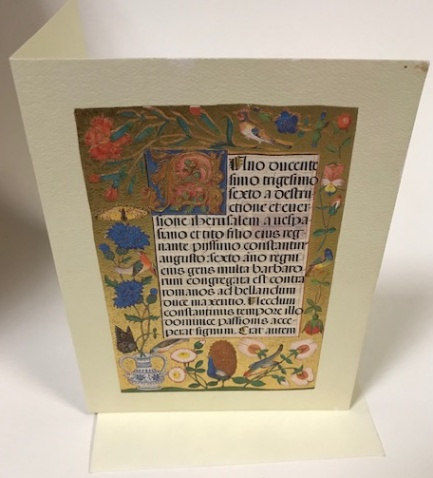 Uno ducente
simo trigesimo
sexto a destru
ctione et ever
sione iherusalem a uespa
siano et tito filio eius reg
nante pijssimo constantin
augusto sexto ano regni
eius gens multa barbaro
rum congregata est contra
romanos ad bellandum
duce maxentio. Uecdum
constantinus tempore illo
dominice passionis acce
perat signum. Erat autem